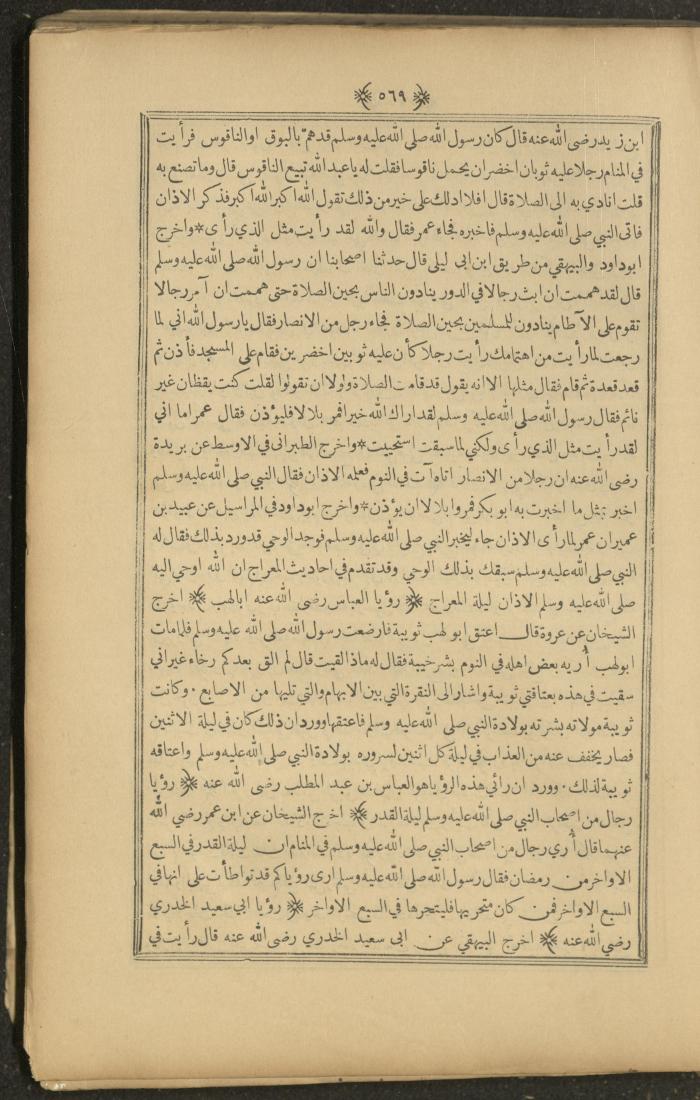 ﴿ ٥٦٩ ﴾
ابن زيد رضى الله عنه قال كان رسول الله صلى الله عليه وسلم قد همّ بالبوق او الناقوس فرأيت
في المنام رجلا عليه ثوبان اخضران يحمل ناقوسا فقلت له يا عبد الله تبيع الناقوس قال وما تصنع به
قلت انادي به الى الصلاة قال افلا ادلك على خير من ذلك تقول الله اكبر الله اكبر فذكر الاذان
فاتى النبي صلى الله عليه وسلم فاخبره فجاء عمر فقال والله لقد رأيت مثل الذي رأى * واخرج
ابو داود والبيهقي من طريق ابن ابى ليلى قال حدثنا اصحابنا ان رسول الله صلى الله عليه وسلم
قال لقد هممت ان ابث رجالا في الدور ينادون الناس بحين الصلاة حتى هممت ان آمر رجالا
تقوم على الآطام ينادون للمسلمين بحين الصلاة فجاء رجل من الانصار فقال يا رسول الله اني لما
رجعت لما رأيت من اهتمامك رأيت رجلا كأن عليه ثوبين اخضرين فقام على المسجد فأذن ثم
قعد قعدة ثم قام فقال مثلها الا انه يقول قد قامت الصلاة ولولا ان تقولوا لقلت كنت يقظان غير
نائم فقال رسول الله صلى الله عليه وسلم لقد اراك الله خيرا فمر بلالا فليؤذن فقال عمر اما اني
لقد رأيت مثل الذي رأى ولكني لما سبقت استحييت * واخرج الطبرانى في الاوسط عن بريدة
رضى الله عنه ان رجلا من الانصار اتاه آت في النوم فعلمه الاذان فقال النبي صلى الله عليه وسلم
اخبر بمثل ما اخبرت به ابو بكر فمروا بلالا ان يؤذن * واخرج ابو داود في المراسيل عن عبيد بن
عمير ان عمر لما رأى الاذان جاء ليخبر النبي صلى الله عليه وسلم فوجد الوحي قد ورد بذلك فقال له
النبي صلى الله عليه وسلم سبقك بذلك الوحي وقد تقدم في احاديث المعراج ان الله اوحي اليه
صلى الله عليه وسلم الاذان ليلة المعراج ﴿ رؤيا العباس رضى الله عنه ابا لهب ﴾ اخرج
الشيخان عن عروة قال اعتق ابو لهب ثويبة فارضعت رسول الله صلى الله عليه وسلم فلما مات
ابو لهب أريه بعض اهله في النوم بشر خيبة فقال له ماذا لقيت قال لم الق بعدكم رخاء غير اني
سقيت في هذه بعتاقتي ثويبة واشار الى النقرة التي بين الابهام والتي تليها من الاصابع . وكانت
ثويبة مولاته بشرته بولادة النبي صلى الله عليه وسلم فاعتقها وورد ان ذلك كان في ليلة الاثنين
فصار يخفف عنه من العذاب في ليلة كل اثنين لسروره بولادة النبي صلى الله عليه وسلم واعتاقه
ثويبة لذلك . وورد ان رائي هذه الرؤيا هو العباس بن عبد المطلب رضى الله عنه ﴿ رؤيا
رجال من اصحاب النبي صلى الله عليه وسلم ليلة القدر ﴾ اخرج الشيخان عن ابن عمر رضي الله
عنهما قال أري رجال من اصحاب النبي صلى الله عليه وسلم في المنام ان ليلة القدر في السبع
الاواخر من رمضان فقال رسول الله صلى الله عليه وسلم ارى رؤياكم قد تواطأت على انها في
السبع الاواخر فمن كان متحريها فليتحرها في السبع الاواخر ﴿ رؤيا ابي سعيد الخدري
رضي الله عنه ﴾ اخرج البيهقي عن ابى سعيد الخدري رضى الله عنه قال رأيت في